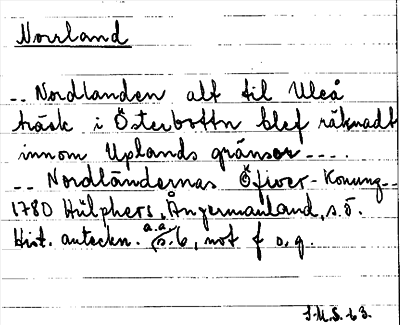 Norrland
-- Nordlanden alt til Uleå
träsk i Österbottn blef räknadt
innom Uplands gränser ----.
-- Nordländernas Öfwer-Konung--
1780 Hülphers, Ångermanland, s.5.
Hist. anteckn. a.a. s.6, not f o. g.